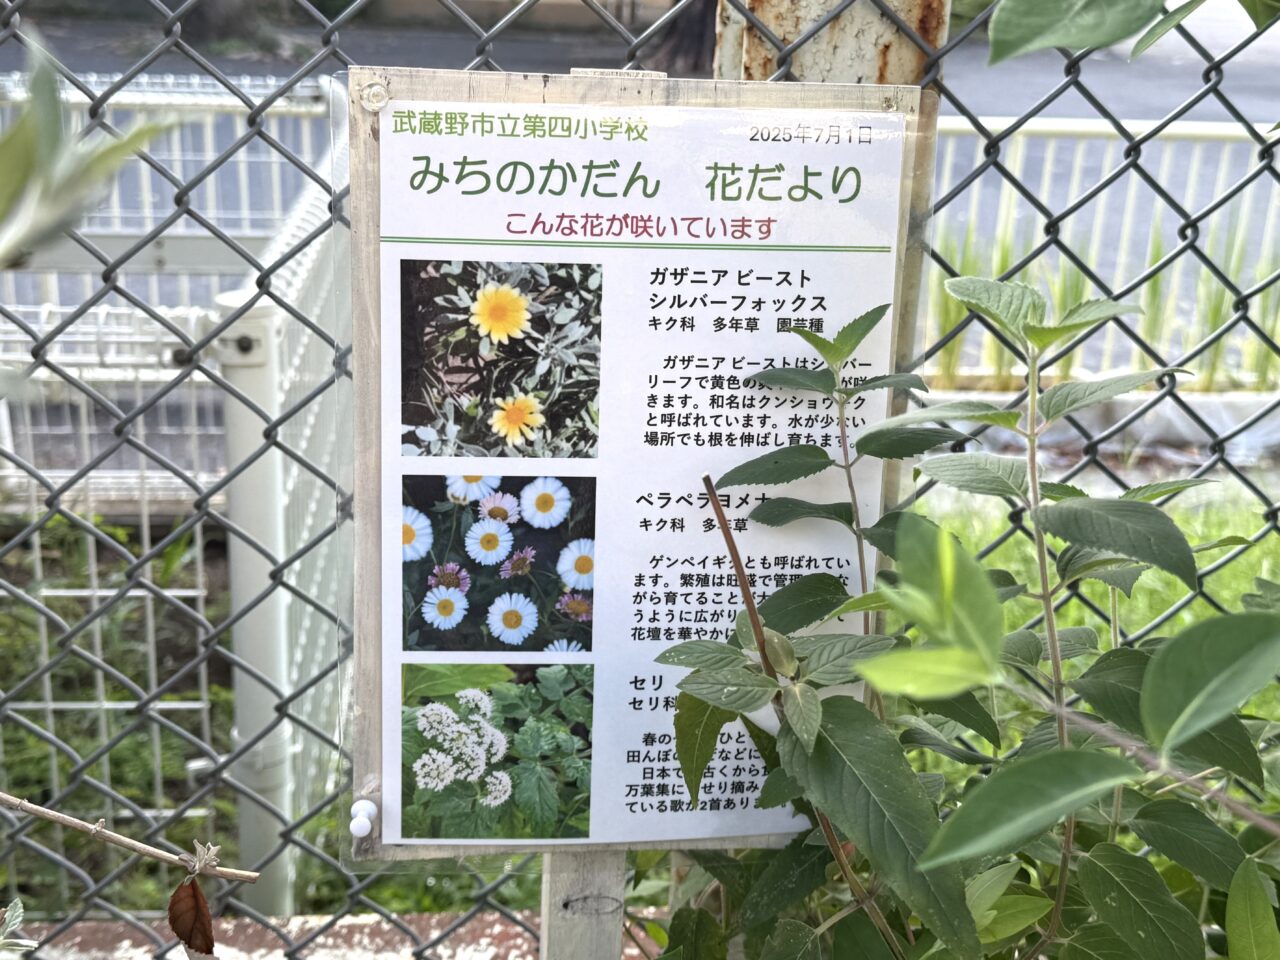 武蔵野市立第四小学校
2025年7月1日
みちのかだん 花だより
こんな花が咲いています
ガザニア ビースト
シルバーフォックス
キク科 多年草 園芸種
ガザニア ビーストはシルバー
リーフで黄色の が咲
きます。和名はクンショウ ク
と呼ばれています。水が少ない
場所でも根を伸ばし育ちます。
ペラペラヨメナ
キク科 多年草
ゲンペイギクとも呼ばれてい
ます。繁殖は旺盛で管理 な
がら育てること 大
うように広がり て
花壇を華やかに
セリ
セリ科
春の ひと
田んぼの などに
日本で 古くから
万葉集に せり摘み
ている歌が2首ありま